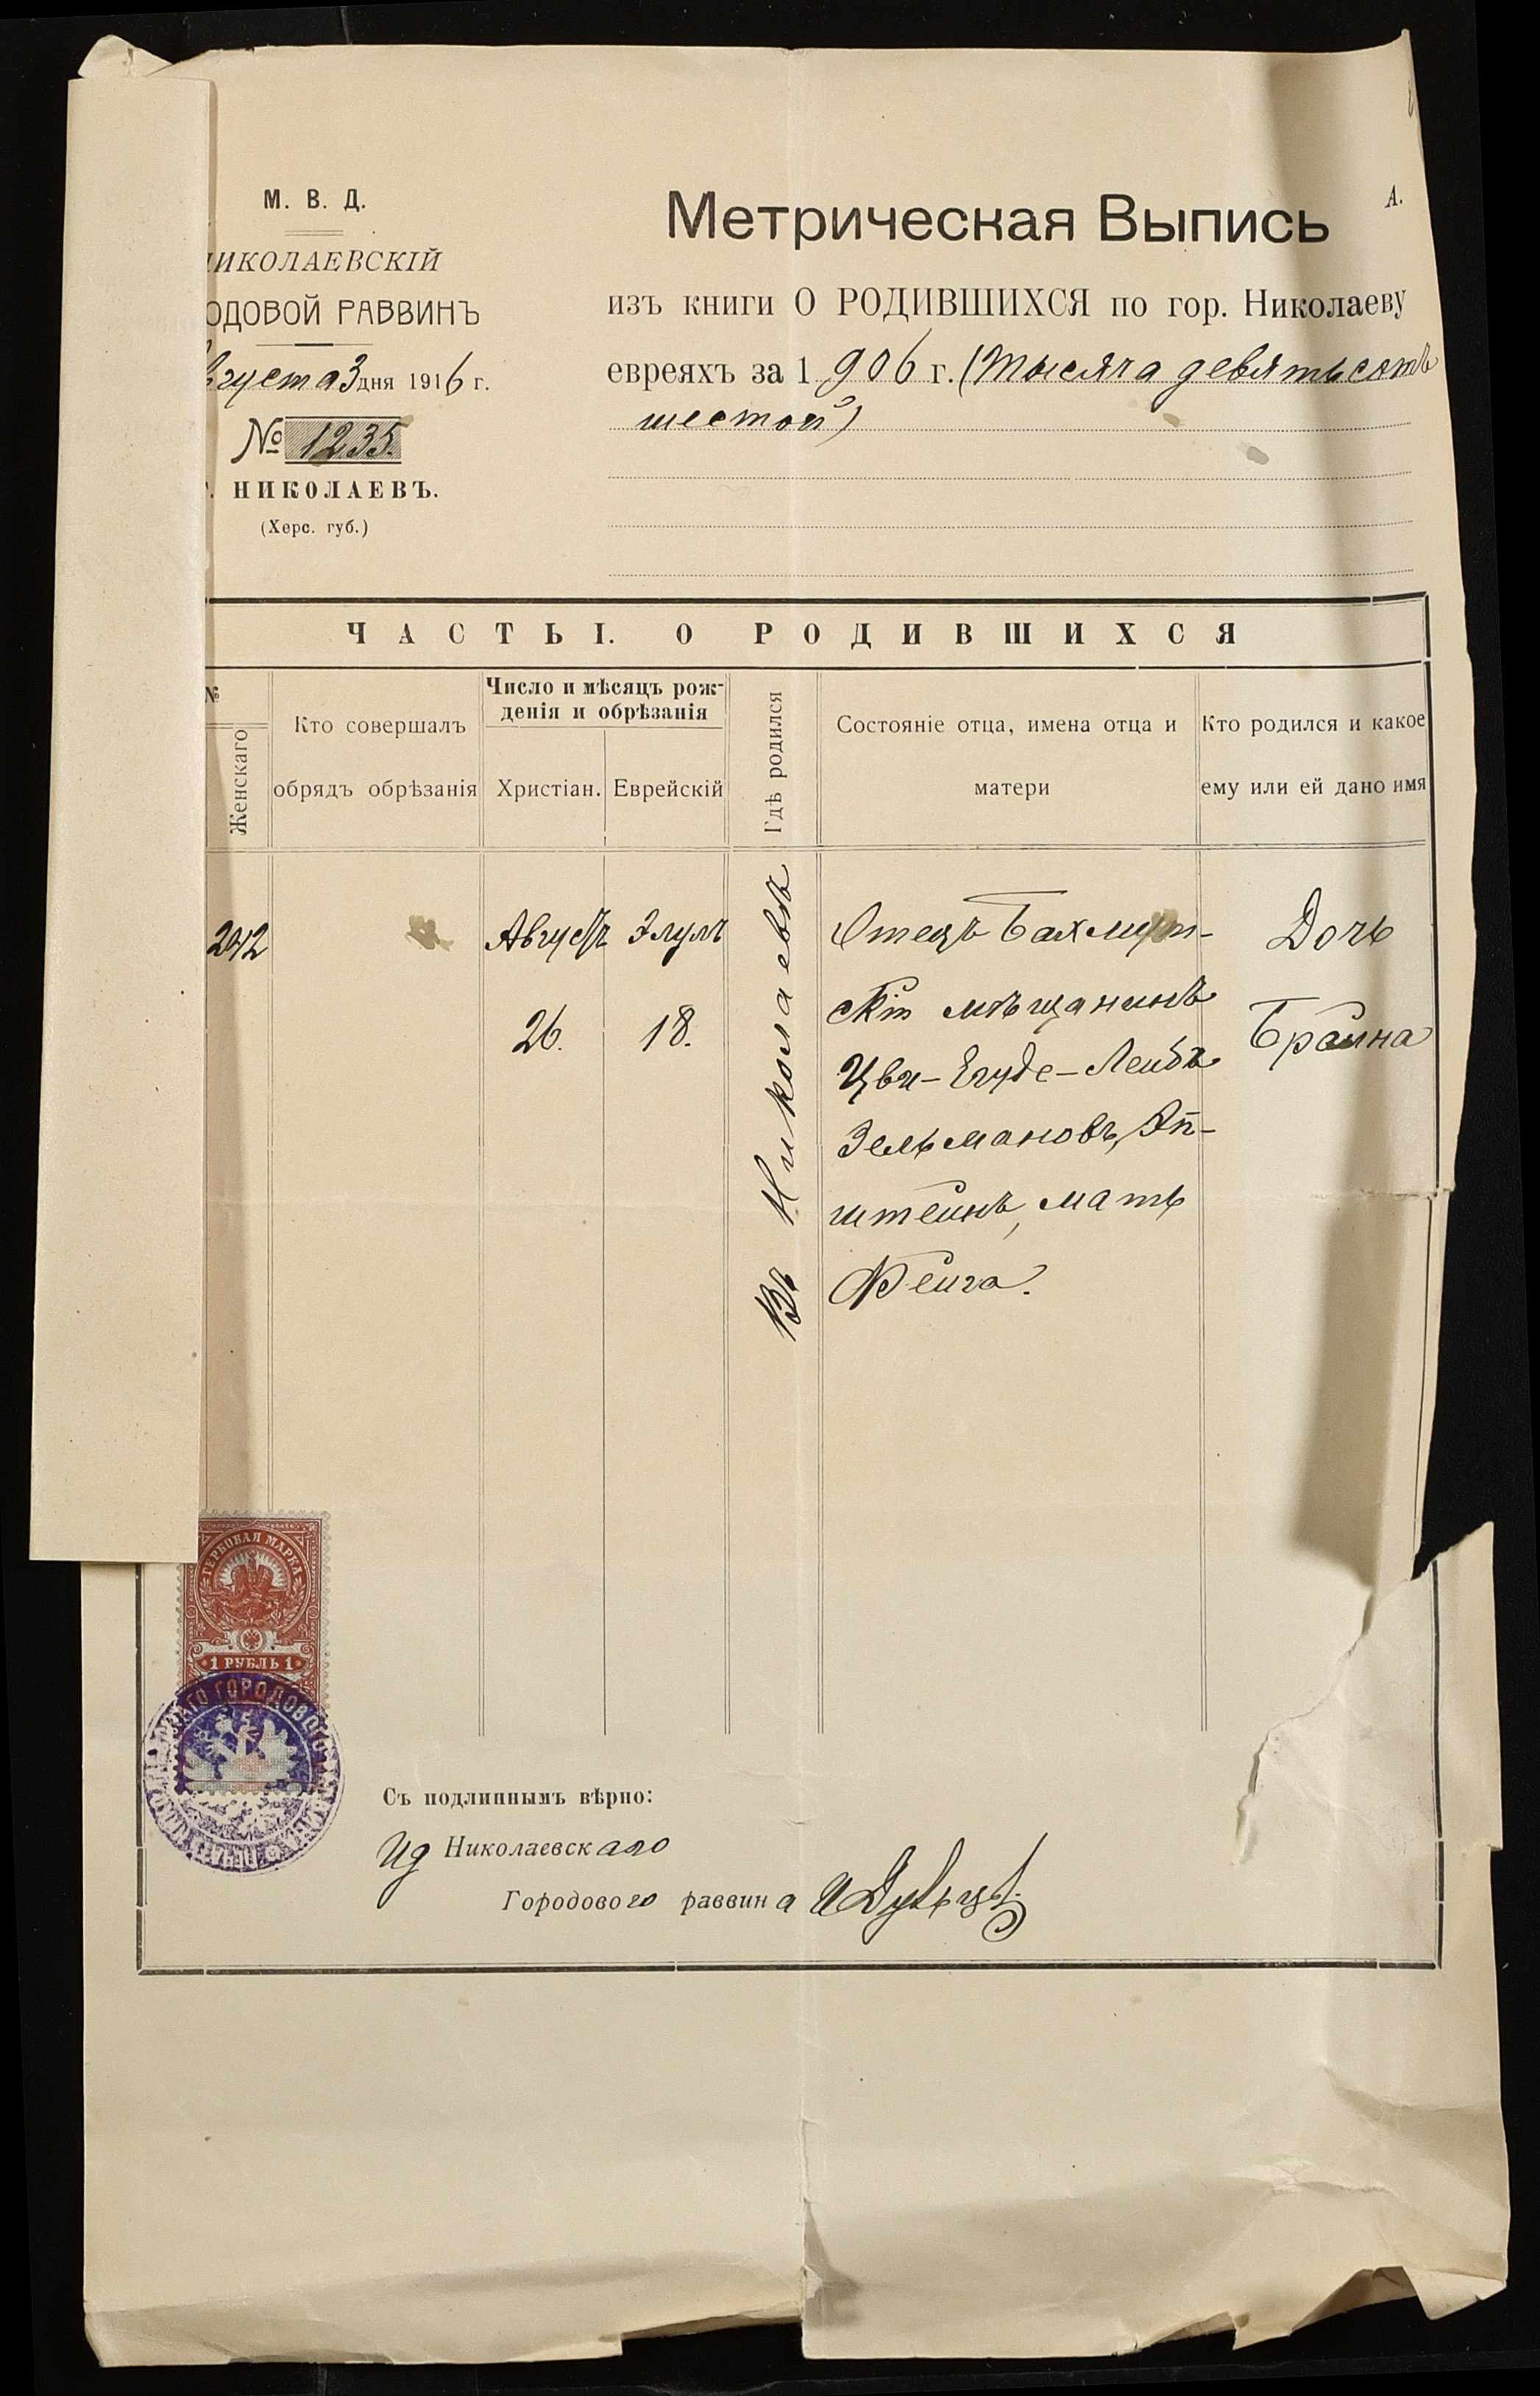 М. В. Д.
НИКОЛАЕВСКІЙ
ОДОВОЙ РАВВИНЪ
вгуста 3 дня 1916 г.
№ 1235.
г. НИКОЛАЕВЪ.
(Херс. губ.)
А.
Метрическая Выпись
изъ книги О РОДИВШИХСЯ по гор. Николаеву
евреяхъ за 1906 г. (тысяча девятьсотъ
шестой)
ЧАСТЬ I. О РОДИВШИХСЯ
№
Женскаго
Кто совершалъ
обрядъ обрѣзанія
Число и мѣсяцъ рож-
денія и обрѣзанія
Христіан.
Еврейскій
Гдѣ родился
Состояніе отца, имена отца и
матери
Кто родился и какое
ему или ей дано имя
2012
Августъ
26.
Элулъ
18.
Въ Николаевѣ
Отецъ Бахмут-
скій мѣщанинъ
Цви-Егуде-Лейбъ
Зельмановъ Эп-
штейнъ, мать
Фейга.
Дочь
Браина
ГЕРБОВАЯ МАРКА
1 РУБЛЬ 1
ГОРОДОВОГО
Съ подлиннымъ вѣрно:
Ид Николаевскаго
Городового раввина